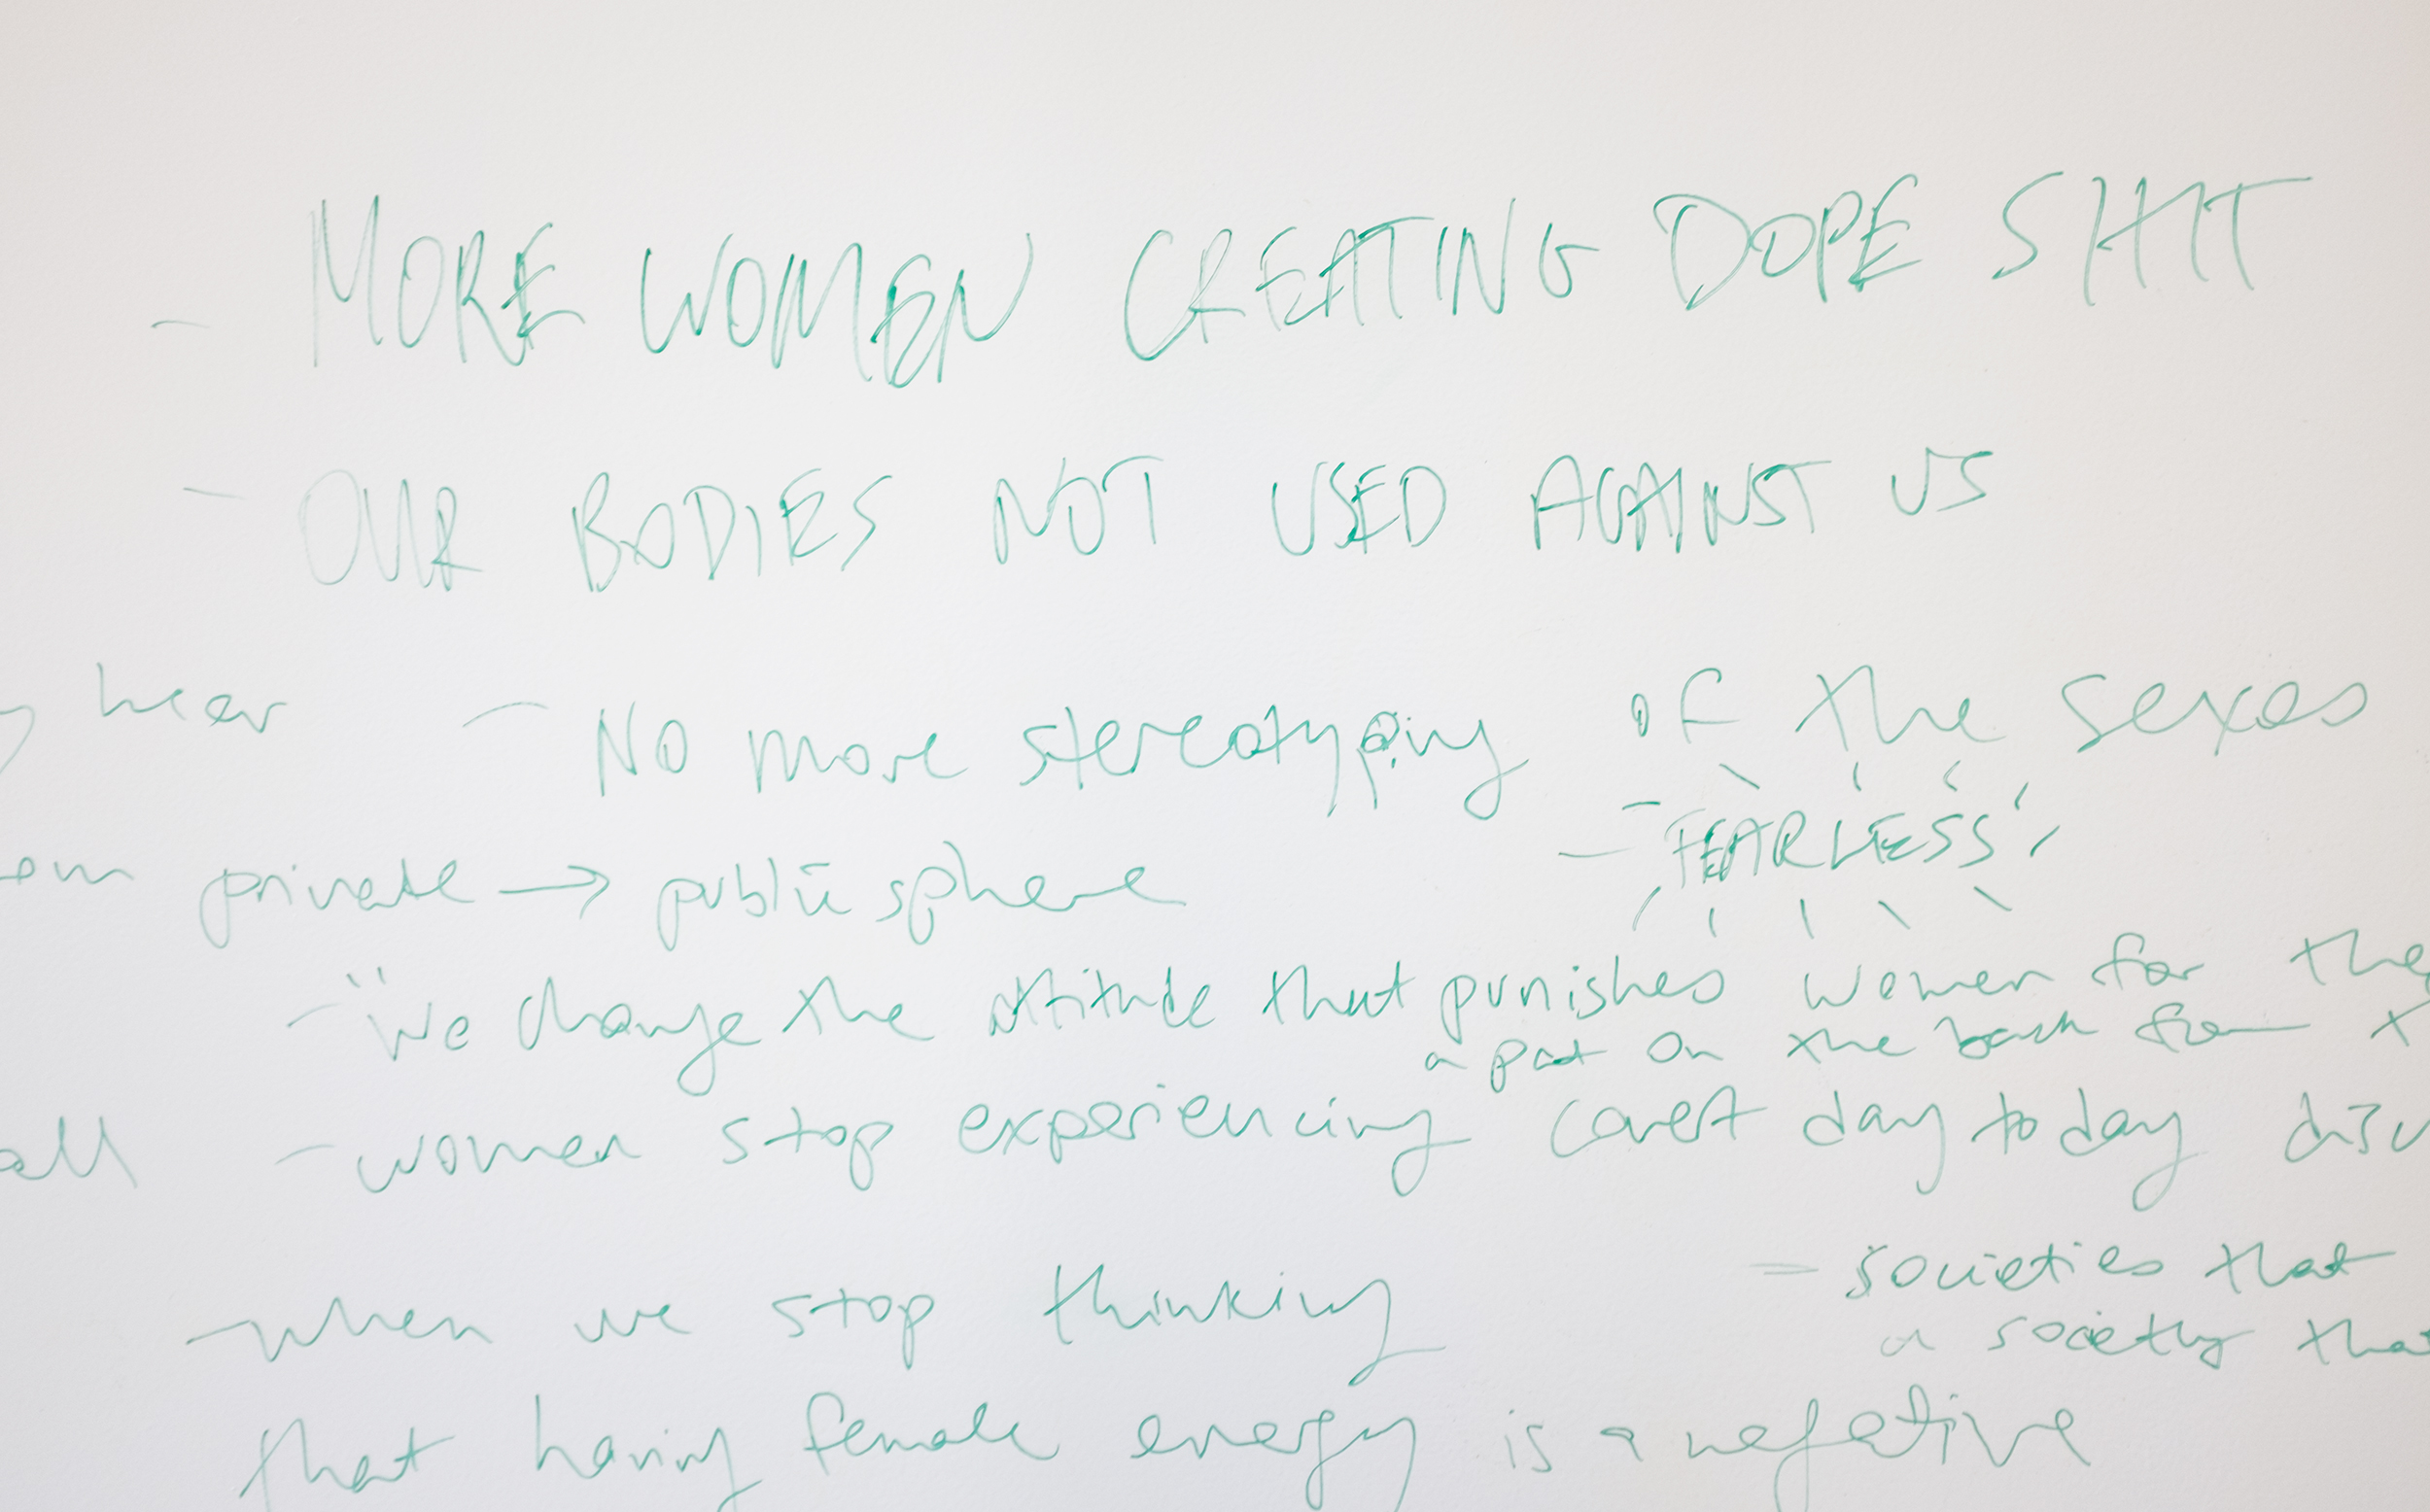 - MORE WOMEN CREATING DOPE SHIT
- OUR BODIES NOT USED AGAINST US
- No more stereotyping of the sexes
- FEARLESS
private → public sphere
- "We change the attitude that punishes women for
a pat on the back from
all - women stop experiencing covert day to day
- when we stop thinking
- societies that
a society that
that having female energy is a negative